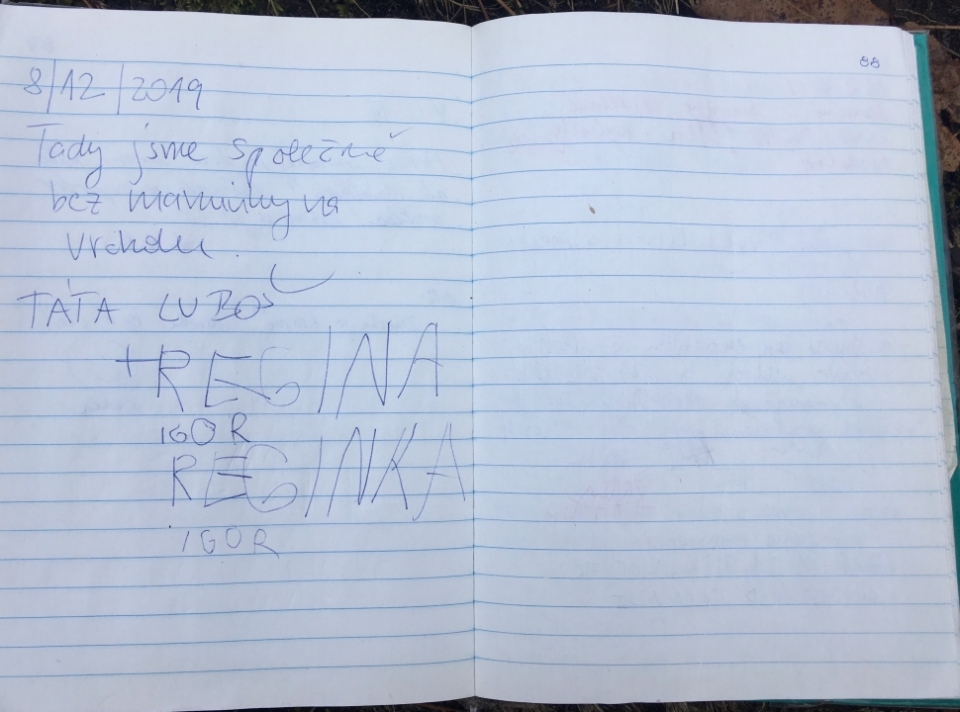 8/12/2019
Tady jsme společně
bez maminky na
vrcholu.
TÁTA LUBOŠ
+REGINA
IGOR
REGINKA
IGOR
88